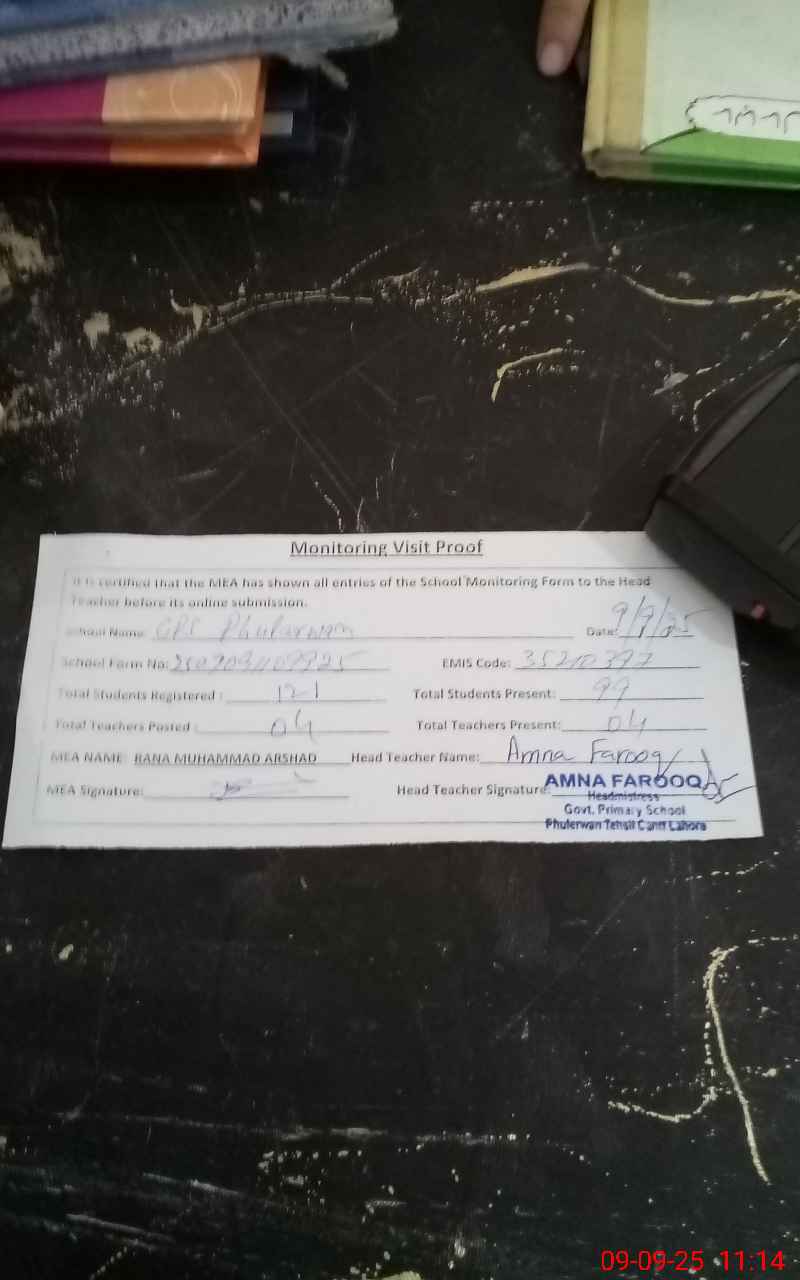 Monitoring Visit Proof
It is certified that the MEA has shown all entries of the School Monitoring Form to the Head
Teacher before its online submission.
School Name: GPS Phularwan Date: 9/9/25
School Form No: EMIS Code: 35210397
Total Students Registered : 121 Total Students Present: 99
Total Teachers Posted : 04 Total Teachers Present: 04
MEA NAME RANA MUHAMMAD ARSHAD Head Teacher Name: Amna Farooq
MEA Signature: Head Teacher Signature:
AMNA FAROOQ
Headmistress
Govt. Primary School
Phulerwan Tehsil Cantt Lahore
09-09-25 11:14